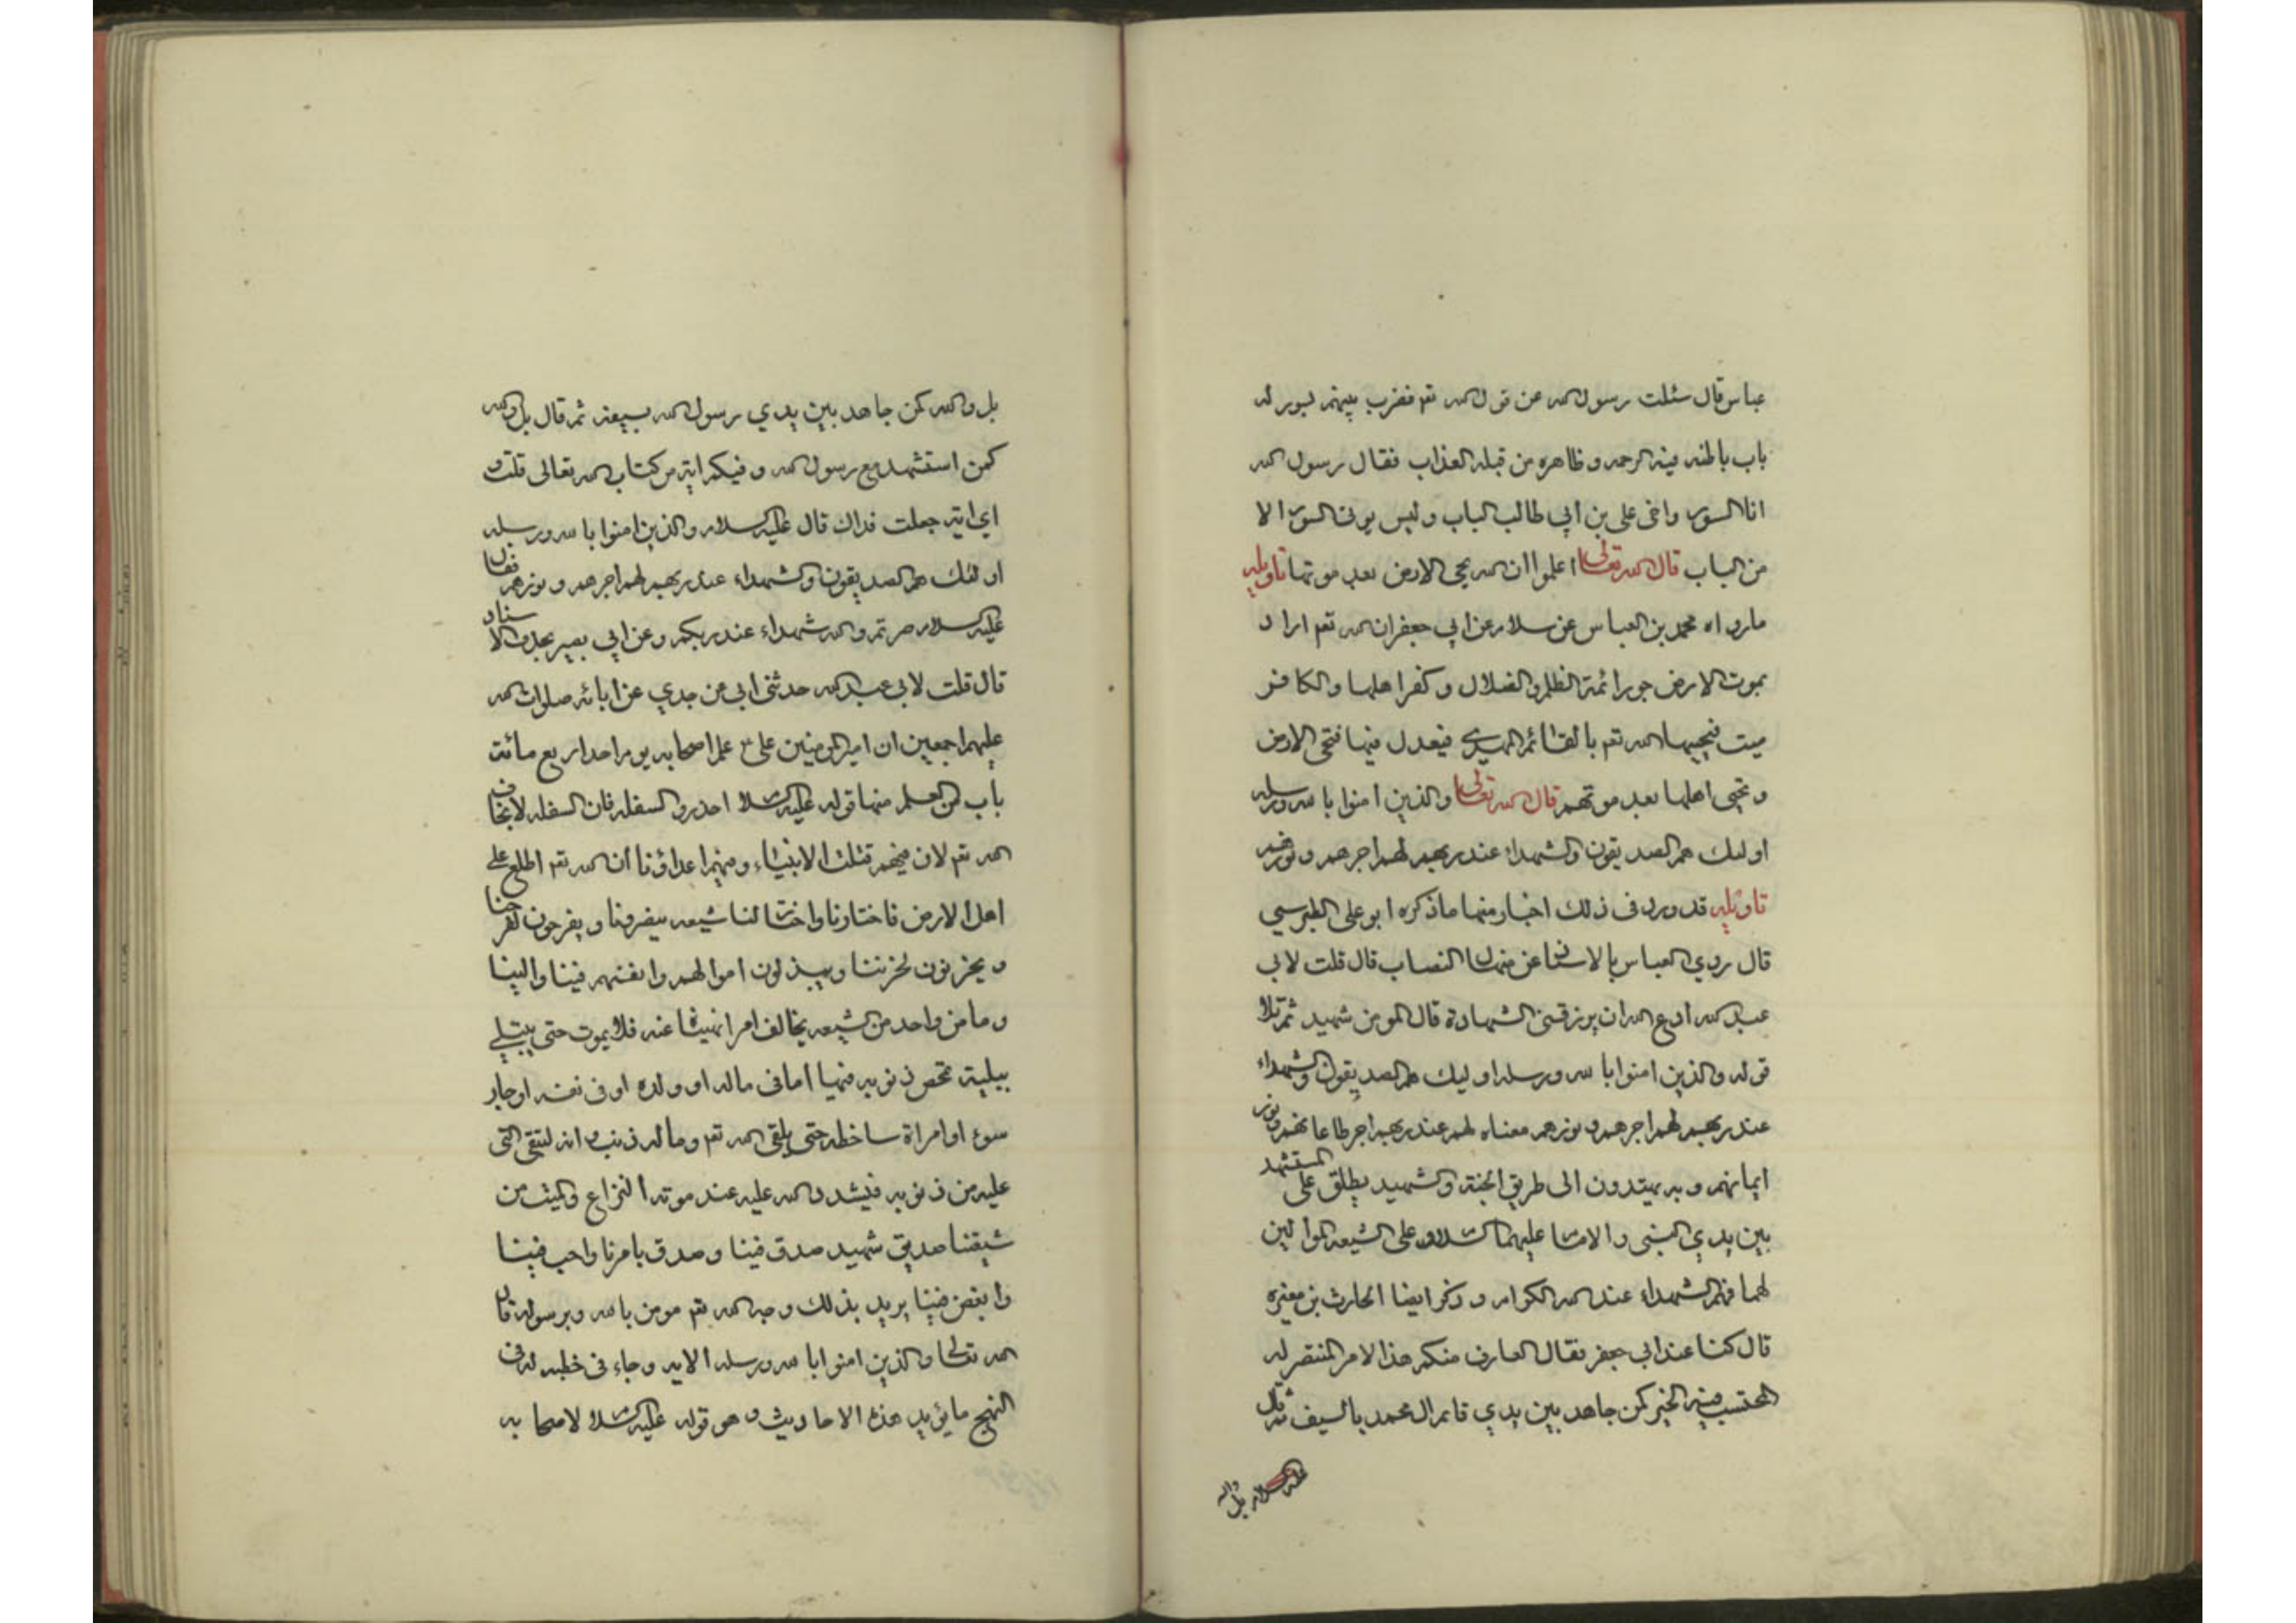 عباس قال سئلت رسول الله عن قول الله تعم فضرب بينهم بسور له
باب باطنه فيه الرحمه و ظاهره من قبله العذاب فقال رسول الله
انا السور واخى على بن ابي طالب الباب وليس يوتى السور الا
من الباب قال الله تعالى اعلموا ان الله يحي الارض بعد موتها تاويله
مارواه محمد بن العباس عن سلام عن ابي جعفر ان الله تعم اراد
بموت الارض جور ائمة الظلم والضلال و كفر اهلها والكافر
ميت فيحييها الله تعم بالقائم المهدي فيعدل فيها فتحى الارض
و تحيى اهلها بعد موتهم قال الله تعالى والذين امنوا بالله ورسله
اولئك هم الصديقون والشهداء عند ربهم لهم اجرهم و نورهم
تاويله قد ورد فى ذلك اخبار منها ما ذكره ابو على الطبرسي
قال روي العباس بالاسناد عن منهال القصاب قال قلت لابي
عبد الله ادع الله ان يرزقنى الشهادة قال المومن شهيد ثم تلا
قوله والذين امنوا بالله ورسله اوليك هم الصديقون والشهداء
عند ربهم لهم اجرهم و نورهم معناه لهم عند ربهم اجر طاعاتهم و نور
ايمانهم و به يهتدون الى طريق الجنة والشهيد يطلق على المستشهد
بين يدي النبى والامام عليهما السلام وعلى الشيعه الموالين
لهما فهم الشهداء عند الله الكرام و ذكر ايضا الحارث بن مغيره
قال كنا عند ابي جعفر فقال العارف منكم هذا الامر المنتصر له
المحتسب فيه الخير كمن جاهد بين يدي قائم ال محمد بالسيف ثم قال
عليه السلام بل والله
بل والله كمن جاهد بين يدي رسول الله بسيفه ثم قال بل والله
كمن استشهد مع رسول الله و فيكم اية من كتاب الله تعالى قلت و
اي اية جعلت فداك قال عليه السلام والذين امنوا بالله ورسله
اولئك هم الصديقون والشهداء عند ربهم لهم اجرهم و نورهم فقال
عليه السلام صرتم والله شهداء عند ربكم وعن ابي بصير بحذف الاسناد
قال قلت لابي عبد الله حدثنى ابي عن جدي عن ابائه صلوات الله
عليهم اجمعين ان امير المومنين على ع علم اصحابه يوم واحد اربع مائة
باب من العلم منها قوله عليه السلام احذروا السفله فان السفله لا يخاف
الله تعم لان فيهم قتلت الانبياء ومنهم اعداؤنا ان الله تعم اطلع على
اهل الارض فاختارنا واختار لنا شيعه ينصرونا و يفرحون لفرحنا
و يحزنون لحزننا و يبذلون اموالهم وانفسهم فينا والينا
وما من واحد من الشيعه يخالف امرا نهيناه عنه فلا يموت حتى يبتلي
ببلية تمحص ذنوبه فيها اما فى ماله او ولده او فى نفسه او جار
سوء او امراة ساخطه حتى يلقى الله تعم وما له ذنب و انه لتبقى التى
عليه من ذنوبه فيشدد الله عليه عند موته النزاع والميت من
شيعتنا صديق شهيد صدق فينا و صدق بامرنا واحب فينا
وابغض فينا يريد بذلك وجه الله تعم مومن بالله وبرسوله قال
الله تعالى والذين امنوا بالله ورسله الايه وجاء فى خطبه له فى
النهج مايؤيد هذه الاحاديث و هو قوله عليه السلام لاصحابه